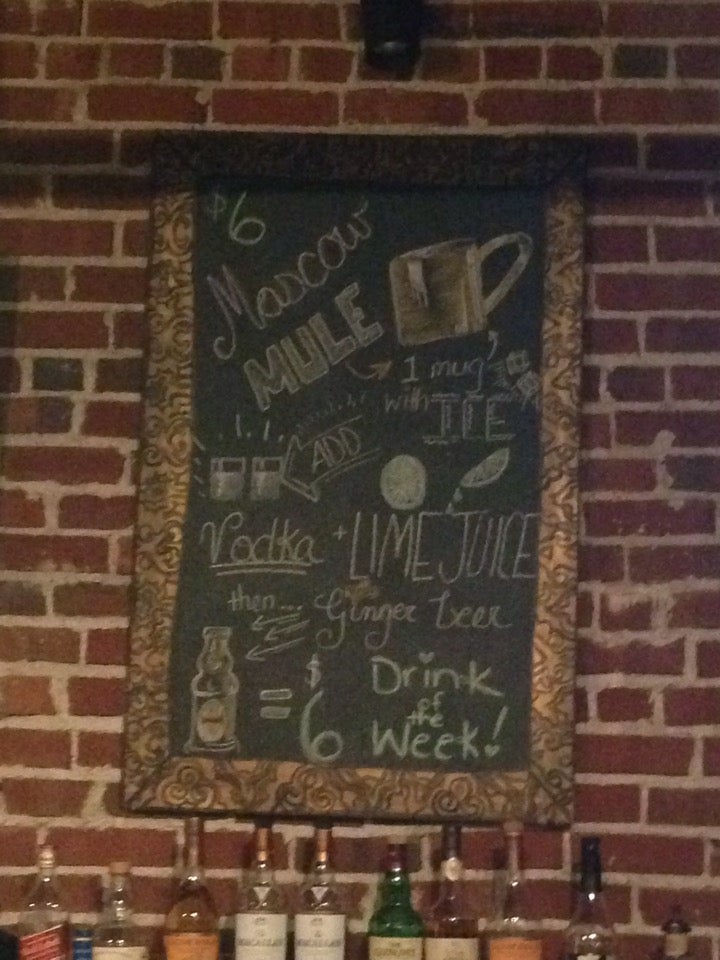 $6
Moscow
MULE
1 mug
with ICE
ADD
Vodka + LIME JUICE
then... Ginger beer
= $6
Drink
of
the
Week!
MACALLAN
MACALLAN